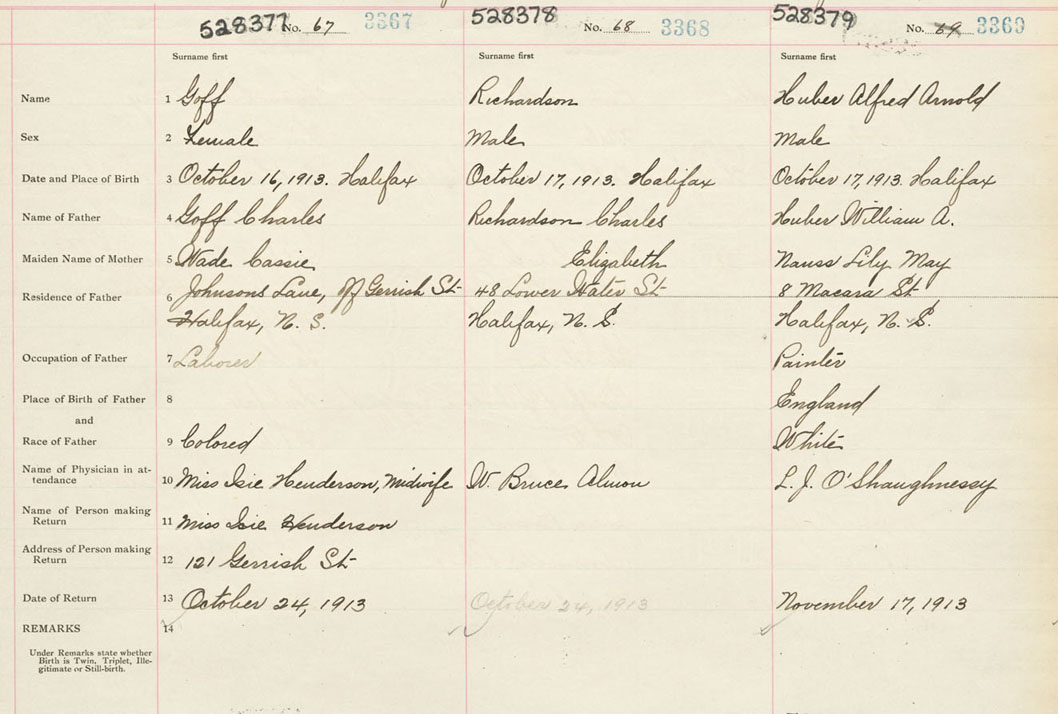 528377 No. 67 3367 528378 No. 68 3368 528379 No. 69 3369
Surname first Surname first Surname first
Name 1 Goff Richardson Huber Alfred Arnold
Sex 2 Female Male Male
Date and Place of Birth 3 October 16, 1913. Halifax October 17, 1913. Halifax October 17, 1913. Halifax
Name of Father 4 Goff Charles Richardson Charles Huber William A.
Maiden Name of Mother 5 Wade Cassie Elizabeth Nauss Lily May
Residence of Father 6 Johnsons Lane, off Gerrish St 48 Lower Water St 8 Macara St
Halifax, N. S. Halifax, N. S. Halifax, N. S.
Occupation of Father 7 Laborer Painter
Place of Birth of Father 8 England
and
Race of Father 9 Colored White
Name of Physician in at-
tendance 10 Miss Isie Henderson, Midwife W. Bruce Almon L. J. O'Shaughnessy
Name of Person making
Return 11 Miss Isie Henderson
Address of Person making
Return 12 121 Gerrish St
Date of Return 13 October 24, 1913 October 24, 1913 November 17, 1913
REMARKS 14
Under Remarks state whether
Birth is Twin, Triplet, Ille-
gitimate or Still-birth.